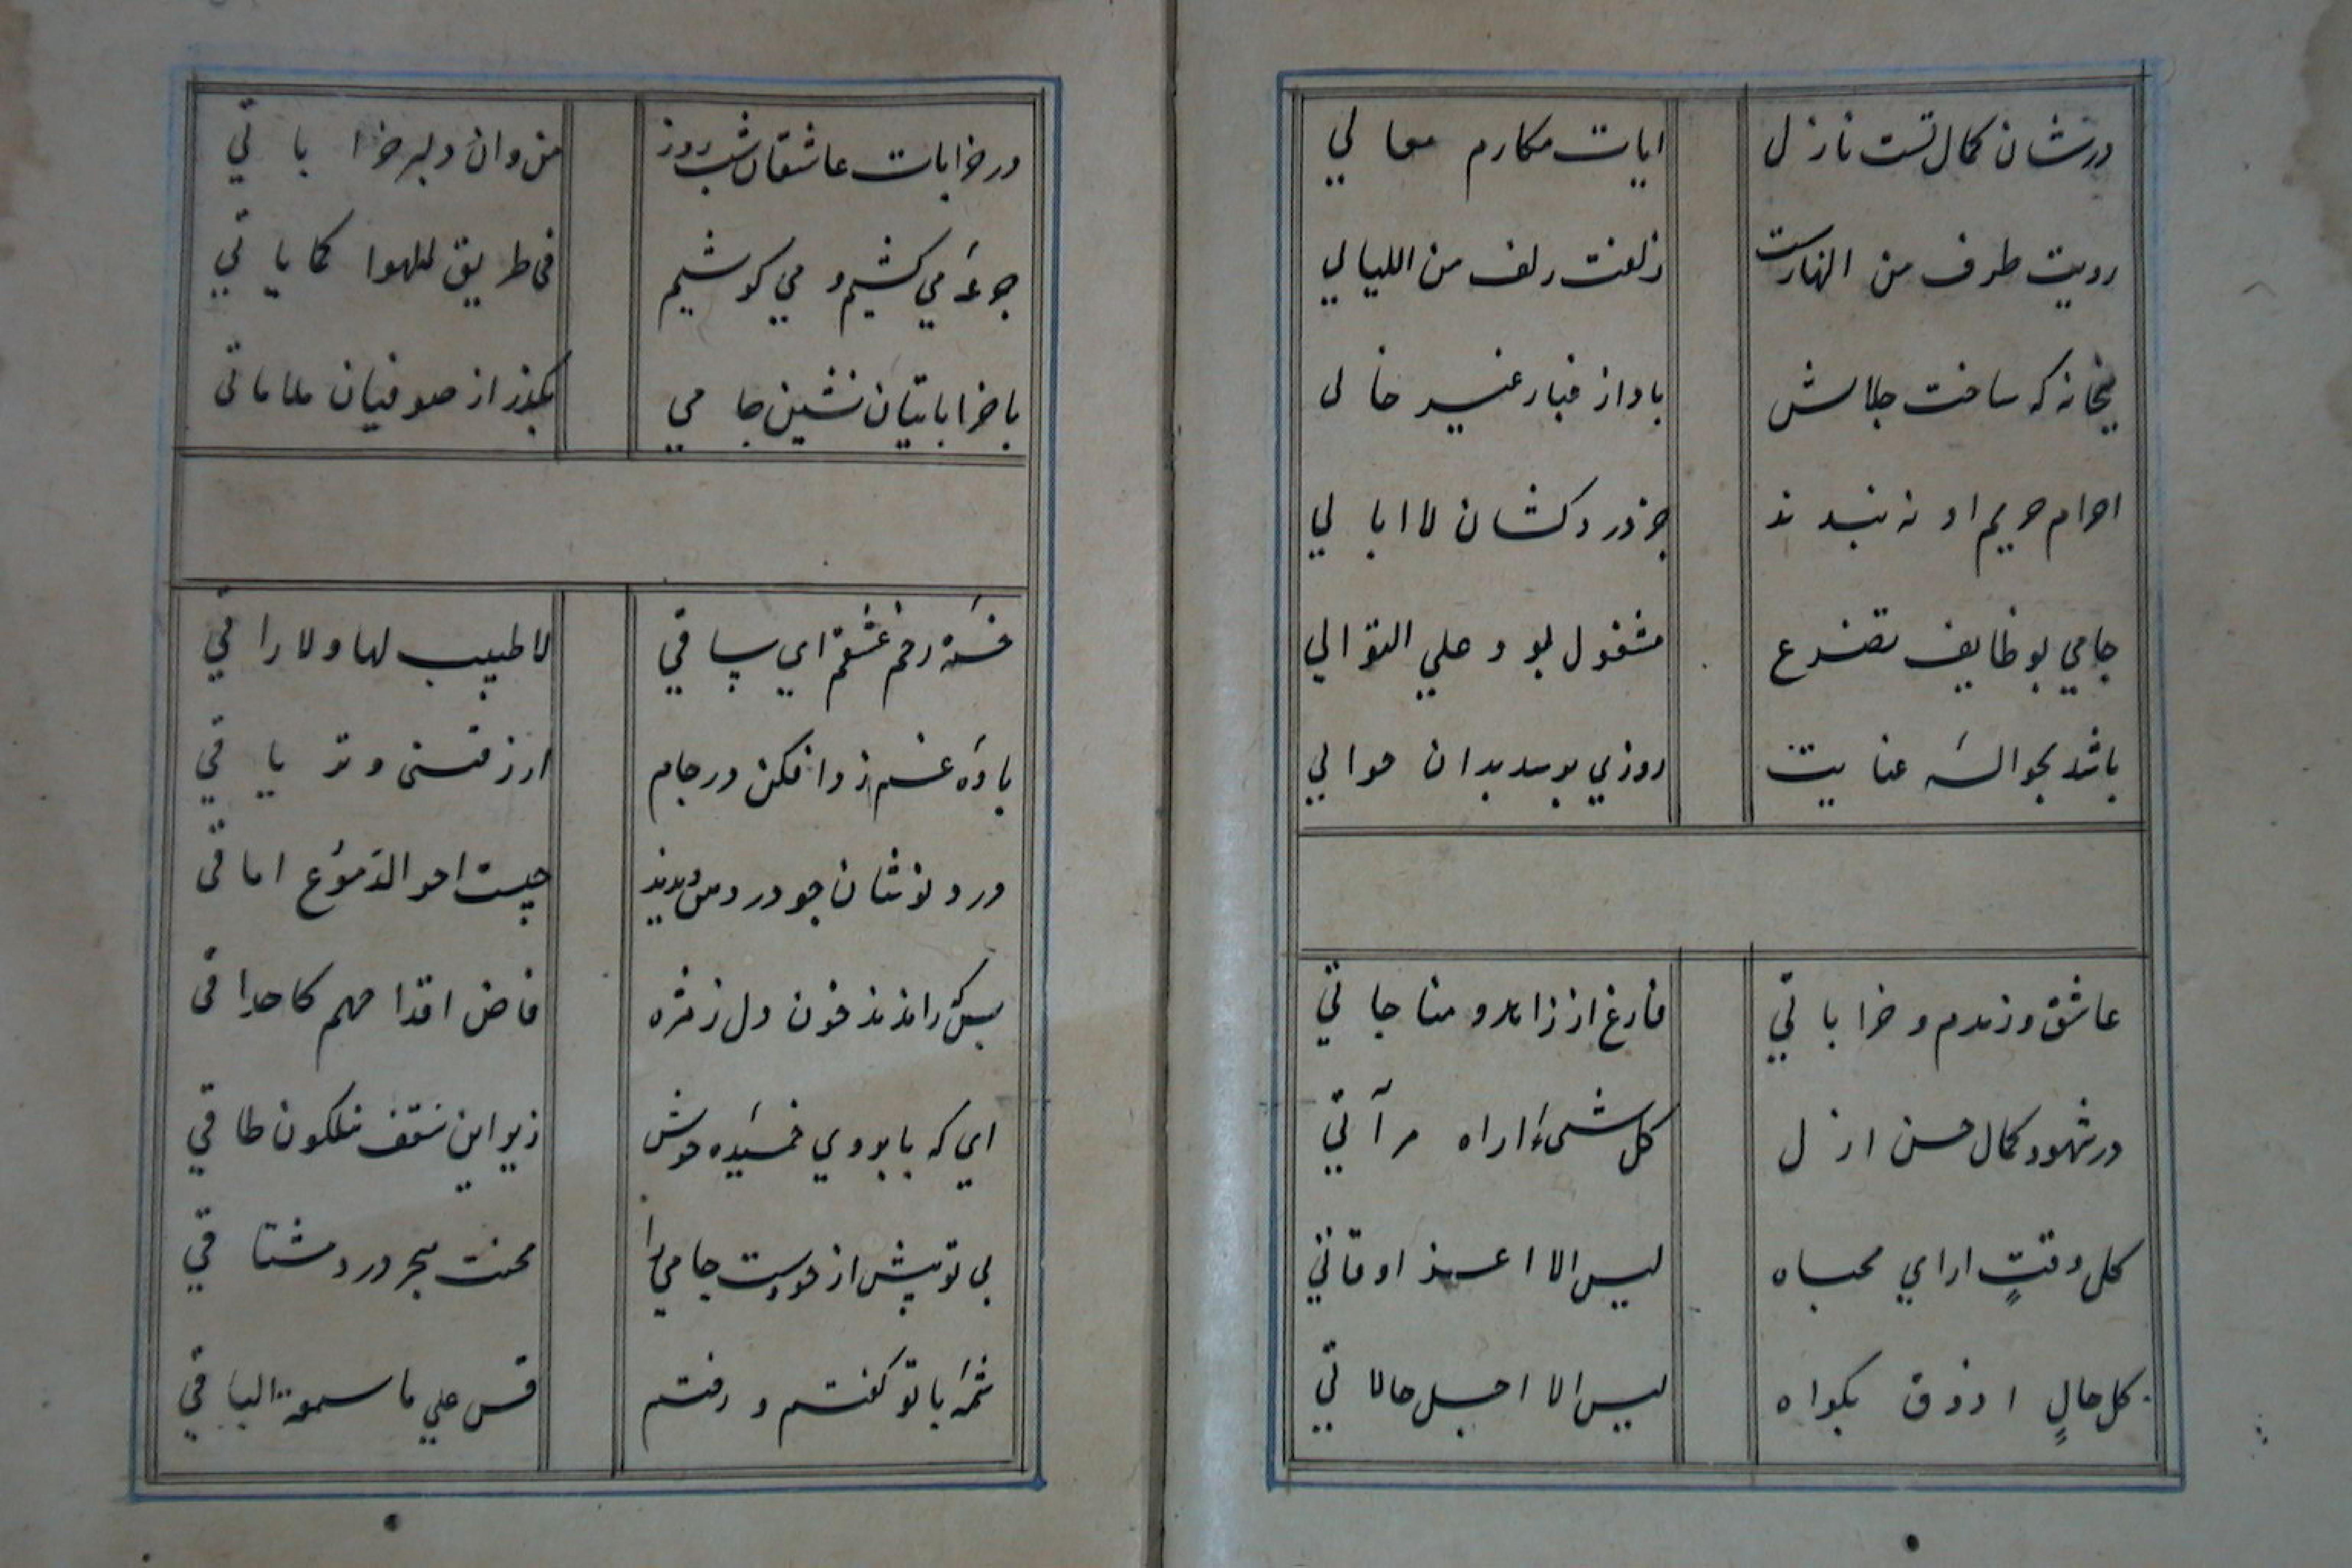 درشان کمال تست نازل ایات مکارم معالی
رویت طرف من النهارست زلفت زلف من اللیالی
میخانه که ساخت جلالش باد از غبار غیر خالی
احرام حریم او نه بندند جز دردکشان لاابالی
جامی بوظایف تضرع مشغول بود علی التوالی
باشد بحواله عنایت روزی برسد بدان حوالی
عاشق و رندم و خراباتی فارغ از زاهد و مناجاتی
در شهود کمال حسن ازل کل شیء اراه مرآتی
کل وقتٍ ارای محیاه لیس الا اعز اوقاتی
کل حالٍ اذوق بکواه لیس الا اجل حالاتی
در خرابات عاشقان شب روز من وان دلبر خراباتی
جرعه می کشیم و می کوشیم فی طریق للهوا کمایاتی
با خراباتیان نشین جامی بکذر از صوفیان طاماتی
خسته زخم عشقم ای ساقی لا طبیب لها ولا راقی
باده غم زدا فکن در جام ارزقنی و تریاقی
درد نوشان جو درد من دیدند چیست احو الدموع اماقی
بسکه راندند خون دل ز مژه فاض اقدامهم کاحداقی
ای که با بوری خسیده خوش زیر این سقف نیلکون طاقی
بی تو پیش از خودست جامی را محنت هجر و درد مشتاقی
شمه با تو کفتم و رفتم قس علی ما سمعة الباقی